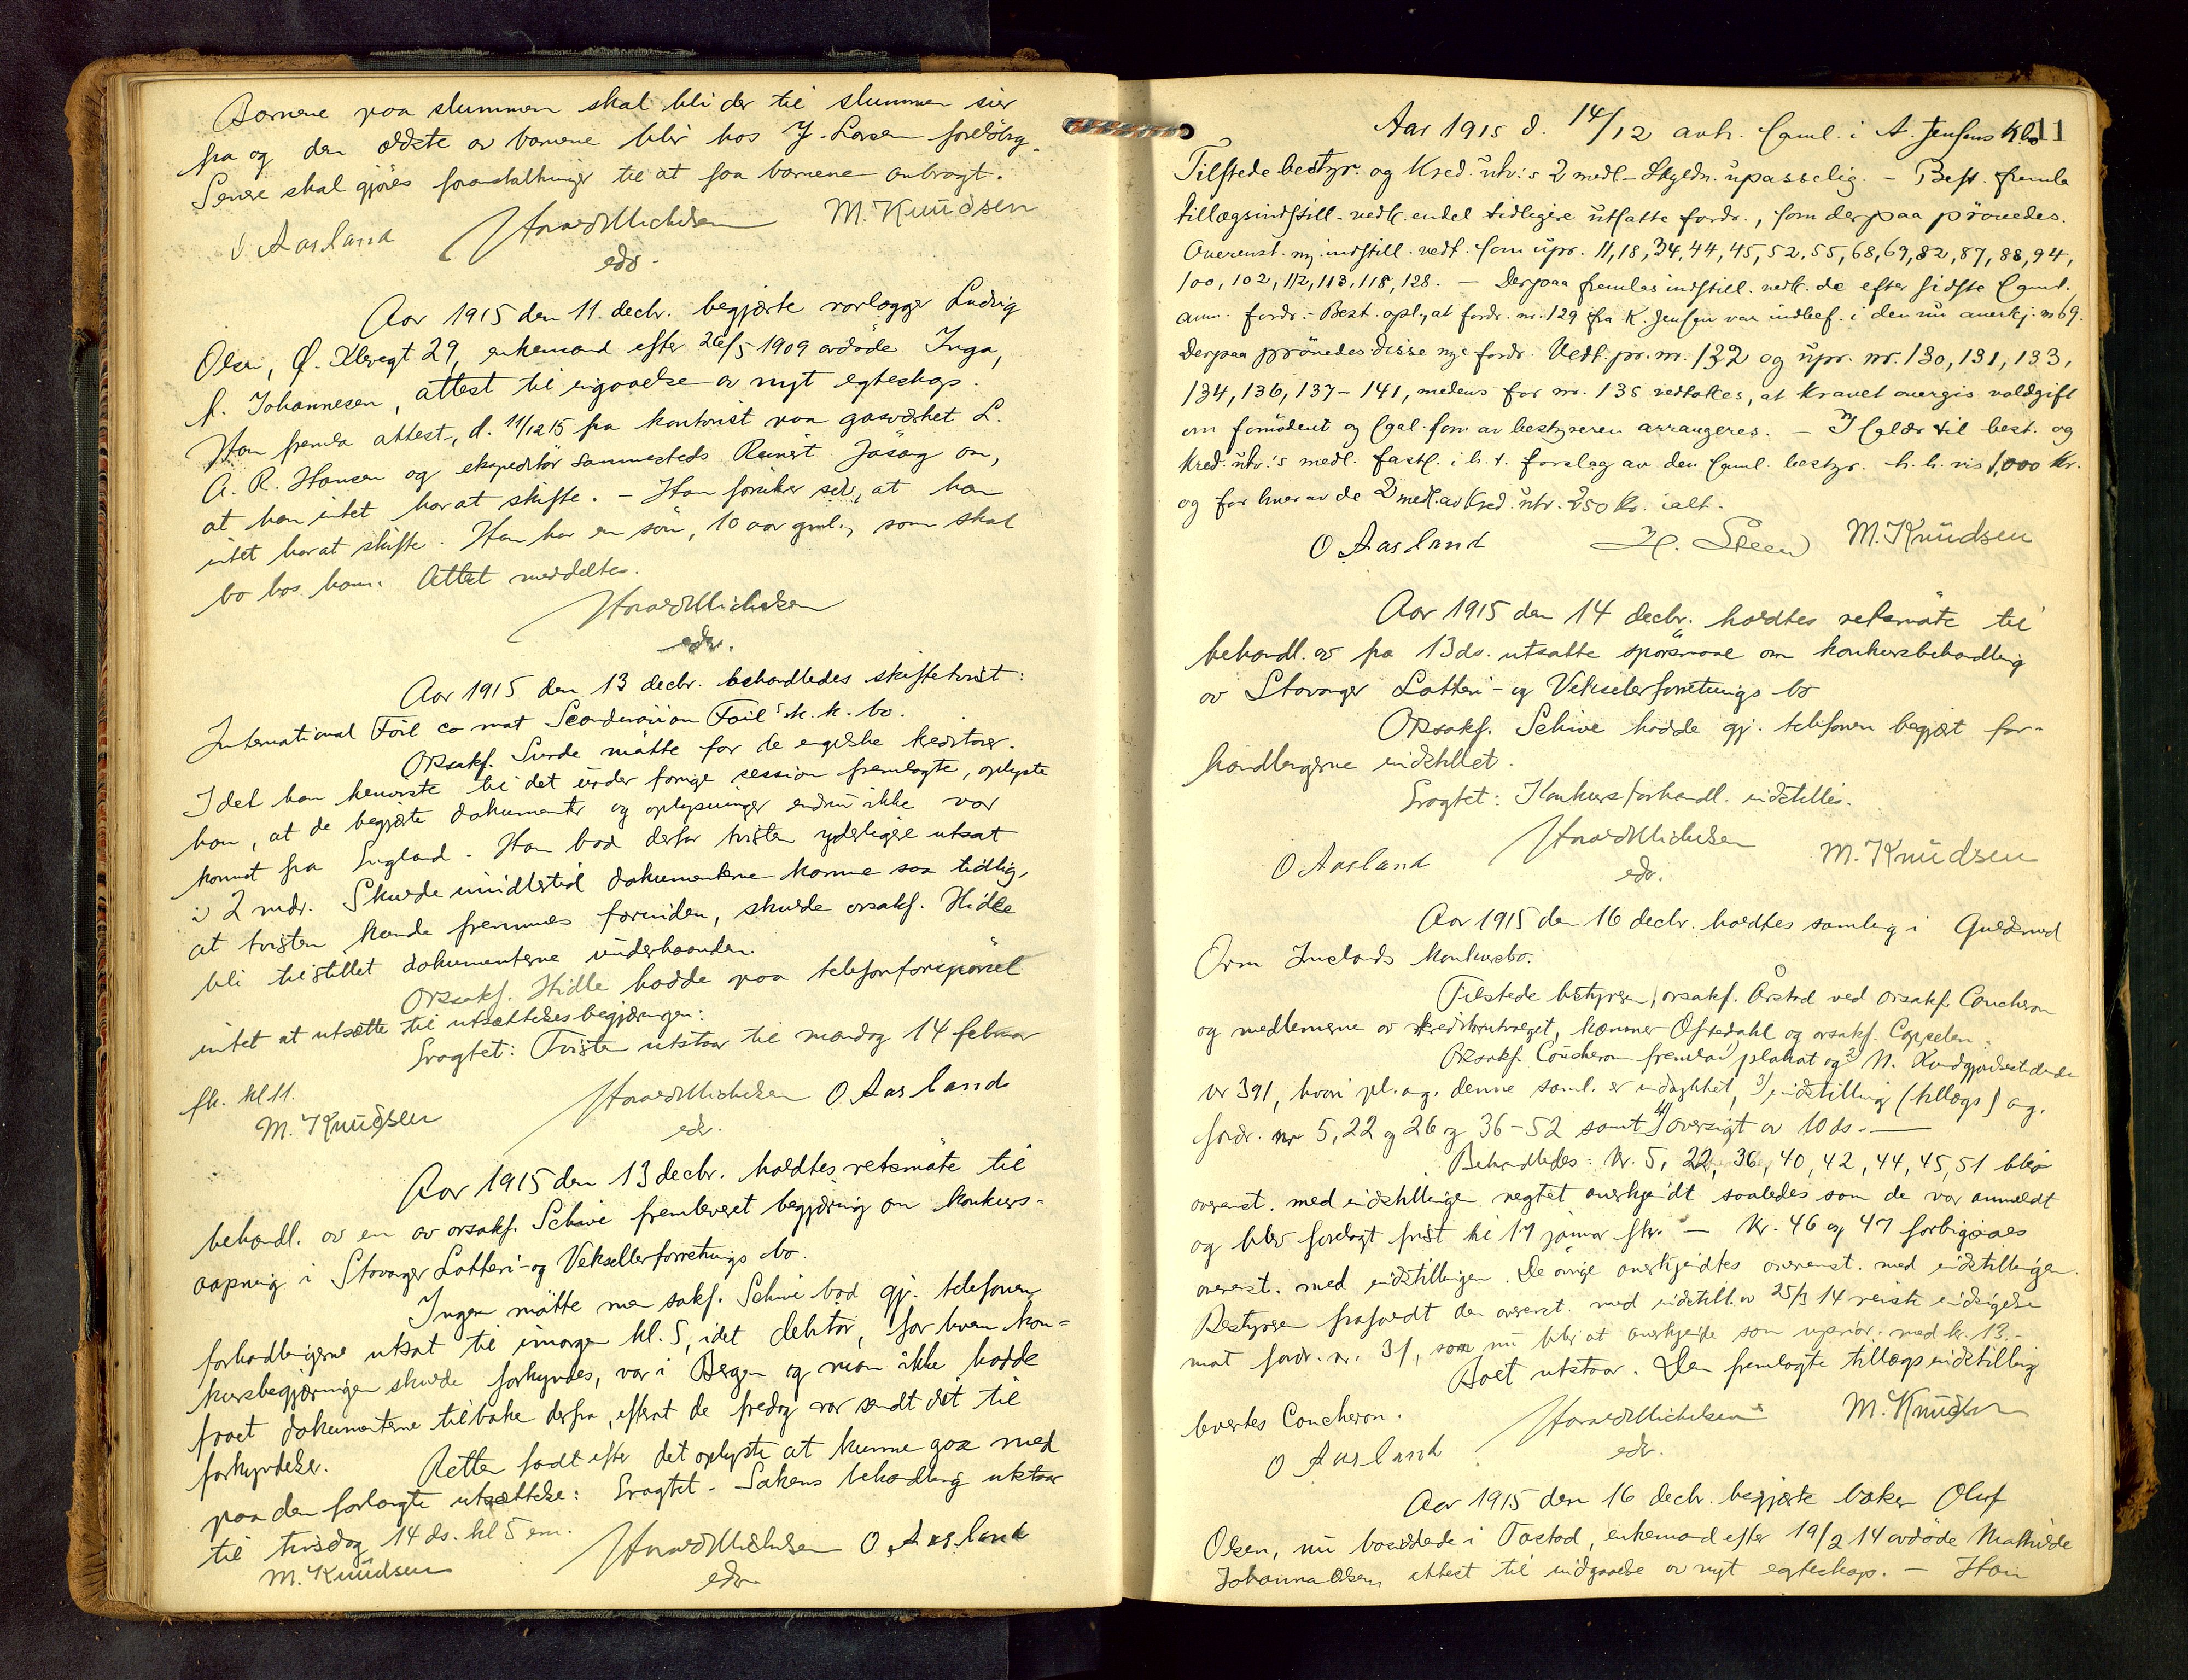 Barnene paa slummen skal bli der til slummen sier
fra og den ældste av barnene blir hos J. Larsen foreløbig.
Senere skal gjøres foranstaltninger til at faa barnene anbragt.
O Aasland HaraldMichelsen M. Knudsen
edv.
Aar 1915 den 11. decbr. begjærte rørlægger Ludvig
Olsen, Ø. 29, enkemand efter 26/5 1909 avdøde Inga,
f. Johannesen, attest til indgaaelse av nyt egteskap.
Han fremla attest, d. 11/12 15 fra kontorist paa gasverket L.
A. R. Hansen og ekspeditör sammesteds Reinert Jåsåg om,
at han intet har at skifte. - Han forsikrer selv, at han
intet har at skifte. Han har en sön, 10 aar gml., som skal
bo hos ham. Attest meddeltes.
HaraldMichelsen
edv.
Aar 1915 den 13 decbr. behandledes skiftetvist:
International Foil co mot Scandinavian Foil's k. k. bo.
Orsakf. Sunde mötte for de engelske kreditorer.
Idet han henviste til det under forrige session fremlagte, oplyste
han, at de begjærte dokumenter og oplysninger endnu ikke var
kommet fra England. Han bad derfor tvisten yderligere utsat
i 2 mdr. Skulde imidlertid dokumenterne komme saa tidlig,
at tvisten kunde fremmes forinden, skulde orsakf. Hidle
bli tilstillet dokumenterne underhaanden.
Orsakf. Hidle hadde paa telefonforespörsel
intet at utsætte til utsættelsesbegjæringen:
Eragtet: Tvisten utstaar til mandag 14 februar
fk. kl 11.
HaraldMichelsen O. Aasland
M. Knudsen edv.
Aar 1915 den 13 decbr. holdtes retsmöte til
behandl. av en av orsakf. Schive fremleveret begjæring om konkurs-
aapning i Stavanger Lotteri- og Vekselerforretnings bo.
Ingen mötte men sakf. Schive bad gj. telefonen
forhandlingerne utsat til imorgen kl. 5, idet debitor, for hvem kon-
kursbegjæringen skulde forkyndes, var i Bergen og man ikke hadde
faaet dokumenterne tilbake derfra, efterat de fredag var sendt dit til
forkyndelse.
Retten fandt efter det oplyste at kunne gaa med
paa den forlangte utsættelse: Eragtet - Sakens behandling utstaar
til tirsdag 14 ds. kl 5 em.
HaraldMichelsen O. Aasland
M. Knudsen edv.
11
Aar 1915 d. 14/12 avh. saml. i A. Jensens kbo
Tilstede bestyr. og Kred. utv.'s 2 medl. - Skyldn. upasselig. - Best. fremla
tillægsindstill. vedk. endel tidligere utsatte fordr., som derpaa prövedes.
Overenst. m. indstill. vedt. som upr. 11, 18, 34, 44, 45, 52, 55, 68, 69, 82, 87, 88, 94,
100, 102, 112, 113, 118, 128. - Derpaa fremlas indstill. vedk. de efter sidste saml.
anm. fordr. - Best. opl., at fordr. nr. 129 fra K. Jensen var indbef. i den nu anerkj. nr 69.
Derpaa prövedes disse nye fordr. Vedt. pr. nr. 132 og upr. nr. 130, 131, 133,
134, 136, 137 - 141, medens for nr. 135 vedtokes, at kravet overgis voldgift
om fornödent og saal. som av bestyreren arrangeres. - I salær til best. og
Kred. utv.'s medl. fasts. i h. t. forslag av den saml. bestyr. h. h. vis 1,000 Kr.
og for hver av de 2 medl. av Kred. utv. 250 Kr. ialt.
O. Aasland H. Steen M. Knudsen
Aar 1915 den 14 decbr. holdtes retsmöte til
behandl. av fra 13 ds. utsatte spörsmaal om konkursbehandling
av Stavanger Lotteri- og Vekselerforretnings bo
Orsakf. Schive hadde gj. telefonen begjært for-
handlingerne indstillet.
Eragtet: Konkursforhandl. indstilles.
O Aasland HaraldMichelsen M. Knudsen
edv.
Aar 1915 den 16 decbr. holdtes samling i Guldsmed
Orm konkursbo.
Tilstede bestyreren, orsakf. Årstad ved orsakf. Coucheron
og medlemmerne av kreditorutvalget, kæmner Oftedahl og orsakf. Coppelen.
Orsakf. Coucheron fremla 1) plakat og 2) N. Kundgjørelsestidende
nr 391, hvori pl. ang. denne saml. er indrykket, 3) indstilling (tillægs) ang.
fordr. nr 5, 22 og 26 og 36-52 samt 4) oversigt av 10 ds. -
Behandledes: Nr. 5, 22, 36, 40, 42, 44, 45, 51 blev
overenst. med indstillingen negtet anerkjendt saaledes som de var anmeldt
og blev forelagt frist til 17 januar fkr. - Nr. 46 og 47 forbigaaes
overenst. med indstillingen. De övrige anerkjendtes overenst. med indstillingen.
Bestyreren frafaldt den overenst. med indstill. av 25/3 14 reiste indsigelse
mot fordr. nr. 31, som nu blir at anerkjende som uprior. med kr. 13.-
Boet utstaar. Den fremlagte tillægsindstilling
levertes Coucheron.
O Aasland HaraldMichelsen M. Knudsen
edv.
Aar 1915 den 16 decbr. begjærte baker Oluf
Olsen, nu bosiddende i Tastad, enkemand efter 19/2 14 avdöde Mathilde
Johanna Olsen attest til indgaaelse av nyt egteskap. - Han